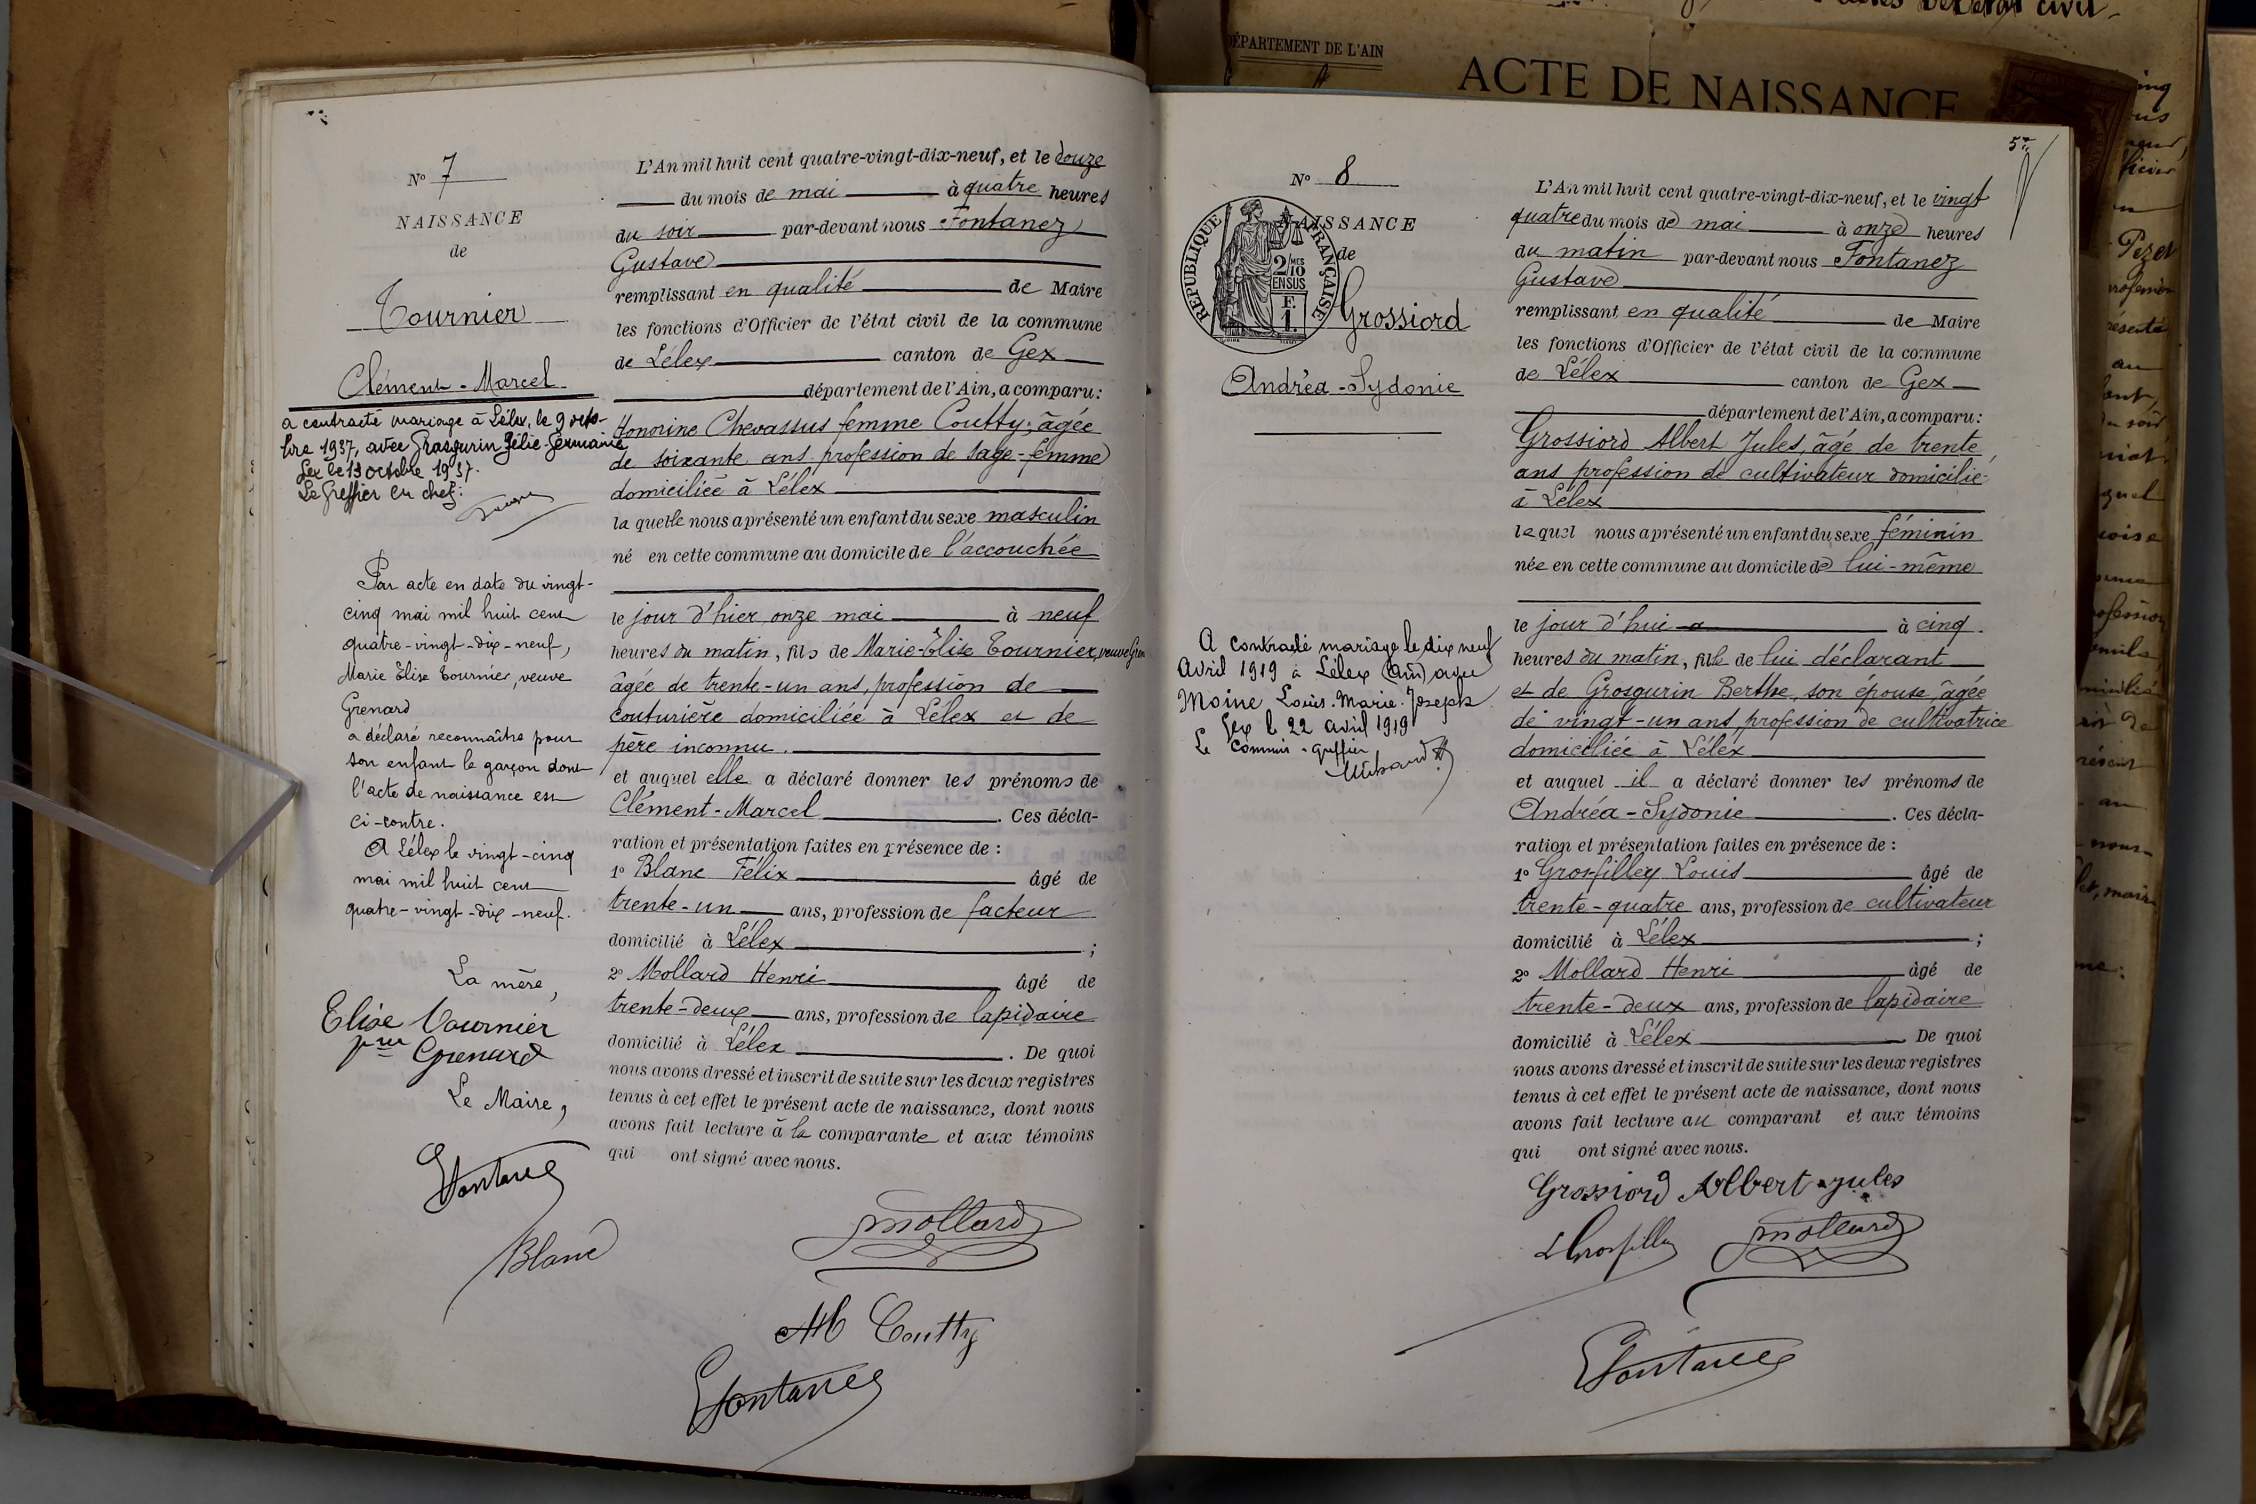 N° 7
NAISSANCE
de
Tournier
Clément-Marcel
a contracté mariage à Lélex, le 9 octo-
bre 1937, avec Grosgurin Félie Germaine
Gex le 13 octobre 1937.
Le Greffier en chef:
Par acte en date du vingt-
cinq mai mil huit cent
quatre-vingt-dix-neuf,
Marie Elise Tournier, veuve
Grenard
a déclaré reconnaître pour
son enfant le garçon dont
l'acte de naissance est
ci-contre.
A Lélex le vingt-cinq
mai mil huit cent
quatre-vingt-dix-neuf.
La mère,
Elise Tournier
Grenard
Le Maire,
Fontanez
Blanc
L'An mil huit cent quatre-vingt-dix-neuf, et le douze
du mois de mai à quatre heures
du soir par-devant nous Fontanez
Gustave
remplissant en qualité de Maire
les fonctions d'Officier de l'état civil de la commune
de Lélex canton de Gex
département de l'Ain, a comparu:
Honorine Chevassus femme Coutty, âgée
de soixante ans profession de sage-femme
domiciliée à Lélex
laquelle nous a présenté un enfant du sexe masculin
né en cette commune au domicile de l'accouchée
le jour d'hier onze mai à neuf
heures du matin, fils de Marie-Elise Tournier, veuve Gren
âgée de trente-un ans, profession de
couturière domiciliée à Lélex et de
père inconnu.
et auquel elle a déclaré donner les prénoms de
Clément-Marcel. Ces décla-
ration et présentation faites en présence de :
1° Blanc Félix âgé de
trente-un ans, profession de facteur
domicilié à Lélex ;
2° Mollard Henri âgé de
trente-deux ans, profession de lapidaire
domicilié à Lélex. De quoi
nous avons dressé et inscrit de suite sur les deux registres
tenus à cet effet le présent acte de naissance, dont nous
avons fait lecture à la comparante et aux témoins
qui ont signé avec nous.
Mollard
Coutty
Fontanez
DÉPARTEMENT DE L'AIN
ACTE DE NAISSANCE
N° 8
NAISSANCE
de
RÉPUBLIQUE FRANÇAISE
2/10 MES
EN SUS
F.
1.
Grossiord
Andréa-Sydonie
A contracté mariage le dix neuf
Avril 1919 à Lélex (Ain) avec
Moine Louis-Marie-Joseph
Gex le 22 avril 1919
Le Commis-Greffier
5
L'An mil huit cent quatre-vingt-dix-neuf, et le vingt
quatre du mois de mai à onze heures
du matin par-devant nous Fontanez
Gustave
remplissant en qualité de Maire
les fonctions d'Officier de l'état civil de la commune
de Lélex canton de Gex
département de l'Ain, a comparu:
Grossiord Albert Jules, âgé de trente
ans profession de cultivateur domicilié
à Lélex
lequel nous a présenté un enfant du sexe féminin
née en cette commune au domicile de lui-même
le jour d'hui à cinq
heures du matin, fille de lui déclarant
et de Grosgurin Berthe, son épouse, âgée
de vingt-un ans, profession de cultivatrice
domiciliée à Lélex
et auquel il a déclaré donner les prénoms de
Andréa-Sydonie. Ces décla-
ration et présentation faites en présence de :
1° Grosfilley Louis âgé de
trente-quatre ans, profession de cultivateur
domicilié à Lélex ;
2° Mollard Henri âgé de
trente-deux ans, profession de lapidaire
domicilié à Lélex De quoi
nous avons dressé et inscrit de suite sur les deux registres
tenus à cet effet le présent acte de naissance, dont nous
avons fait lecture au comparant et aux témoins
qui ont signé avec nous.
Grossiord Albert Jules
L Grosfilley
Mollard
Fontanez